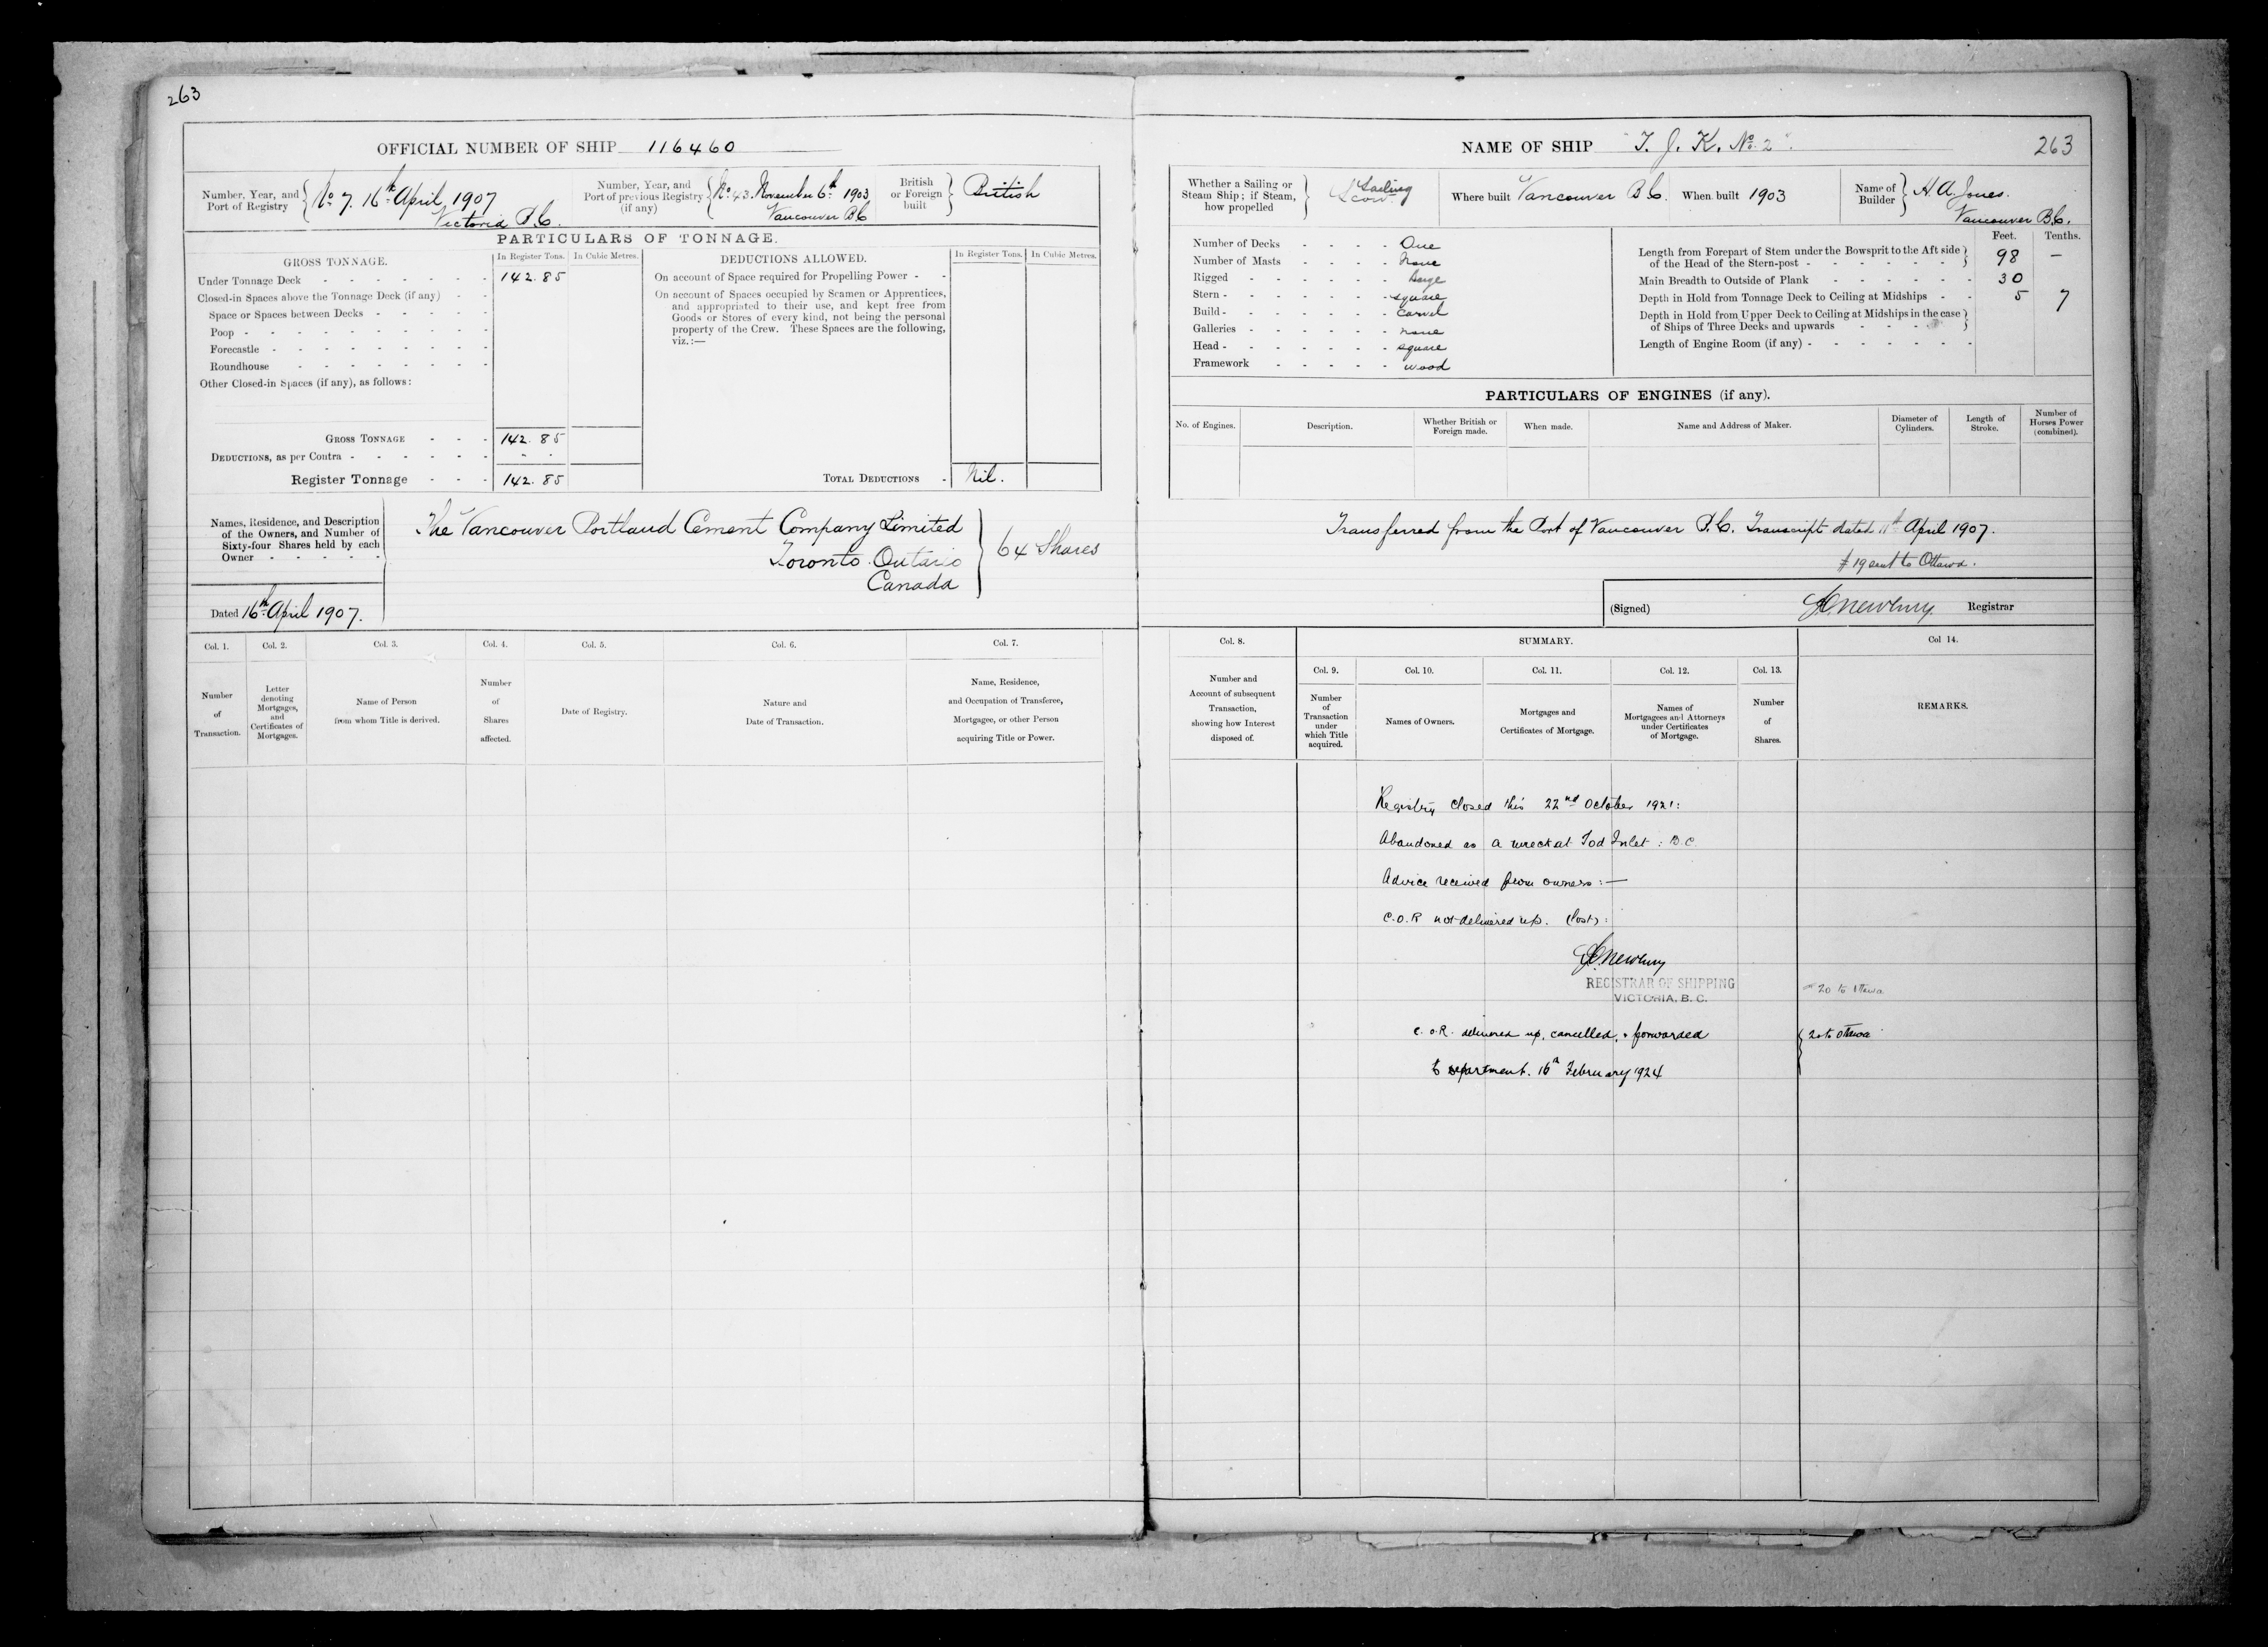 263
OFFICIAL NUMBER OF SHIP 116460
Number, Year, and Port of Registry { No 7. 16th April 1907
Victoria B.C.
Number, Year, and Port of previous Registry (if any) { No 43. November 6th 1903
Vancouver B.C
British or Foreign built } British
PARTICULARS OF TONNAGE.
GROSS TONNAGE.
In Register Tons.
In Cubic Metres.
Under Tonnage Deck 142.85
Closed-in Spaces above the Tonnage Deck (if any)
Space or Spaces between Decks
Poop
Forecastle
Roundhouse
Other Closed-in Spaces (if any), as follows:
GROSS TONNAGE 142.85
DEDUCTIONS, as per Contra
Register Tonnage 142.85
DEDUCTIONS ALLOWED.
In Register Tons.
In Cubic Metres.
On account of Space required for Propelling Power
On account of Spaces occupied by Seamen or Apprentices,
and appropriated to their use, and kept free from
Goods or Stores of every kind, not being the personal
property of the Crew. These Spaces are the following,
viz.:—
TOTAL DEDUCTIONS Nil.
Names, Residence, and Description
of the Owners, and Number of
Sixty-four Shares held by each
Owner
The Vancouver Portland Cement Company Limited
Toronto Ontario
Canada
64 Shares
Dated 16th April 1907.
Col. 1.
Number
of
Transaction.
Col. 2.
Letter
denoting
Mortgages,
and
Certificates of
Mortgages.
Col. 3.
Name of Person
from whom Title is derived.
Col. 4.
Number
of
Shares
affected.
Col. 5.
Date of Registry.
Col. 6.
Nature and
Date of Transaction.
Col. 7.
Name, Residence,
and Occupation of Transferee,
Mortgagee, or other Person
acquiring Title or Power.
NAME OF SHIP "T. J. K. No 2".
263
Whether a Sailing or
Steam Ship; if Steam,
how propelled
Sailing
Scow
Where built Vancouver B.C.
When built 1903
Name of Builder } H. A. Jones.
Vancouver B.C.
Number of Decks One
Number of Masts None
Rigged Barge
Stern square
Build carvel
Galleries none
Head square
Framework wood
Feet.
Tenths.
Length from Forepart of Stem under the Bowsprit to the Aft side
of the Head of the Stern-post 98 —
Main Breadth to Outside of Plank 30
Depth in Hold from Tonnage Deck to Ceiling at Midships 5 7
Depth in Hold from Upper Deck to Ceiling at Midships in the case
of Ships of Three Decks and upwards
Length of Engine Room (if any)
PARTICULARS OF ENGINES (if any).
No. of Engines.
Description.
Whether British or
Foreign made.
When made.
Name and Address of Maker.
Diameter of
Cylinders.
Length of
Stroke.
Number of
Horses Power
(combined).
Transferred from the Port of Vancouver B.C. Transcript dated 11th April 1907.
# 19 sent to Ottawa.
(Signed) Newbury Registrar
Col. 8.
Number and
Account of subsequent
Transaction,
showing how Interest
disposed of.
SUMMARY.
Col. 9.
Number
of
Transaction
under
which Title
acquired.
Col. 10.
Names of Owners.
Col. 11.
Mortgages and
Certificates of Mortgage.
Col. 12.
Names of
Mortgagees and Attorneys
under Certificates
of Mortgage.
Col. 13.
Number
of
Shares.
Col 14.
REMARKS.
Registry closed this 22nd October 1921:
Abandoned as a wreck at Tod Inlet: B.C.
Advice received from owners:—
C.O.R not delivered up. (lost):
Newbury
REGISTRAR OF SHIPPING
VICTORIA, B. C.
20 to Ottawa
C.O.R. delivered up, cancelled, & forwarded
to Department. 16th February 1924
20 to Ottawa